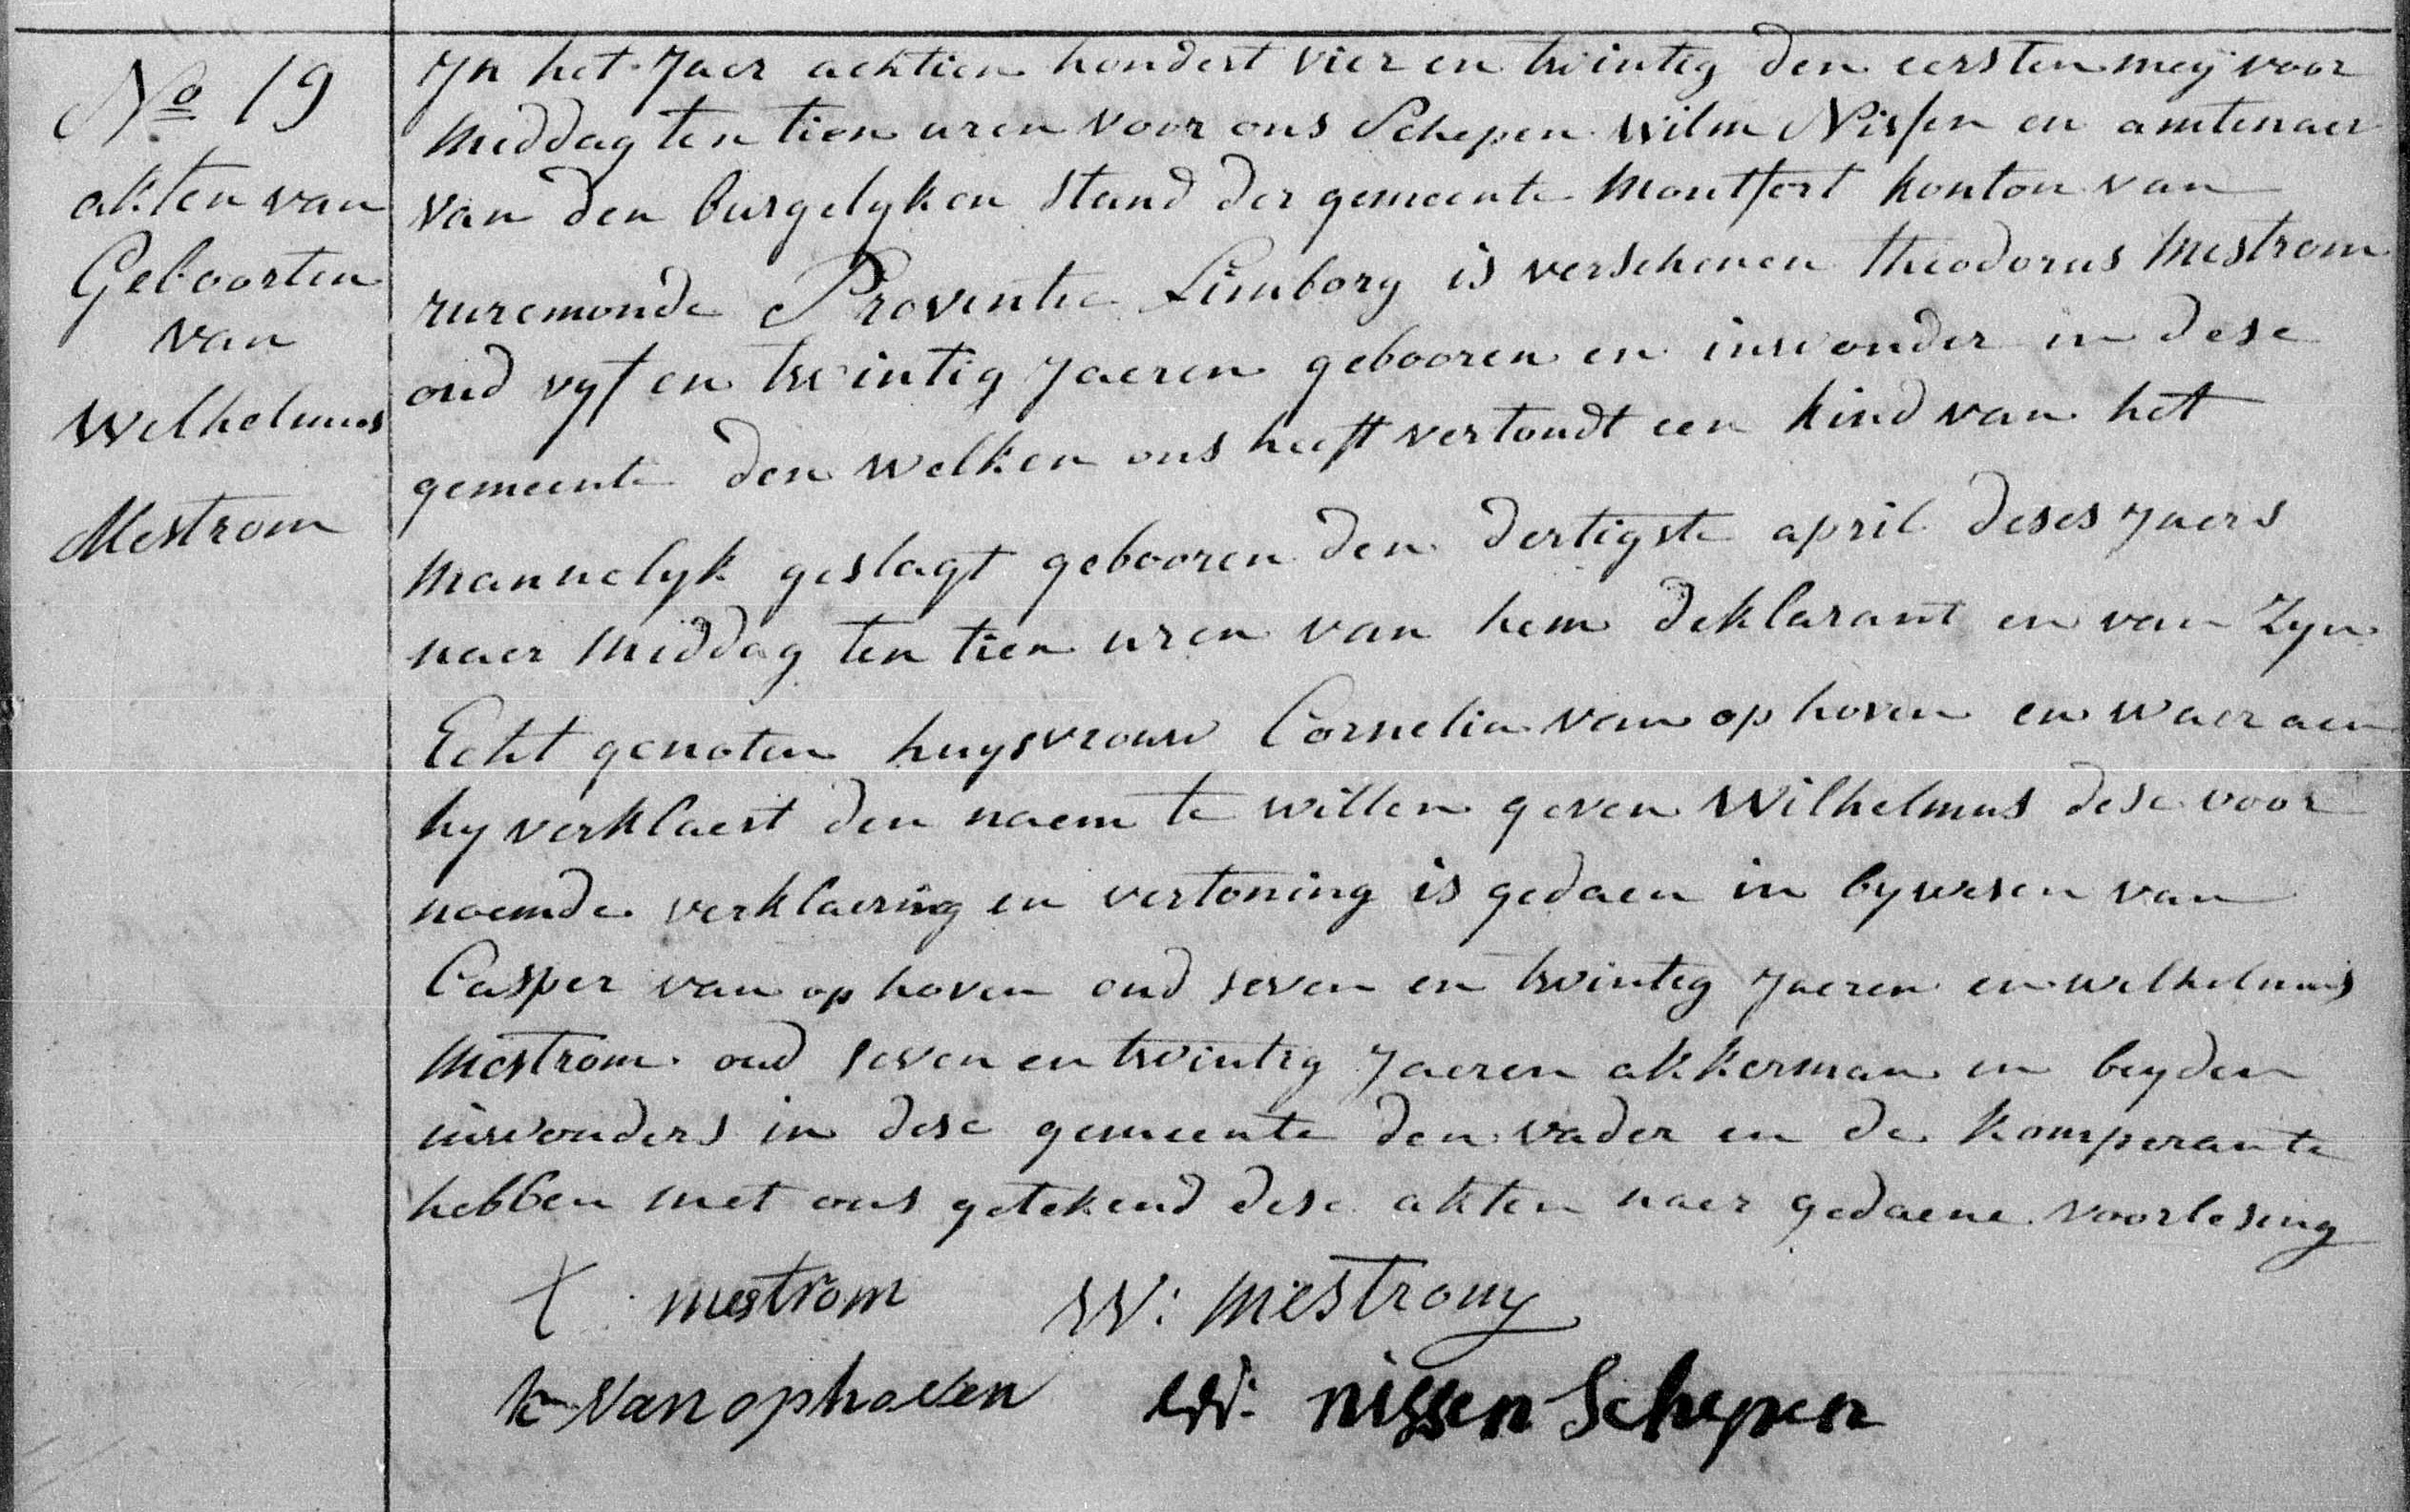 No 19
akten van
Geboorten
van
Welhelmus
Mestrom
Jn het Jaer achtien hondert vier en twintig den eersten meij voor
middag ten tien uren voor ons Schepen Wilm Nissen en amtenaer
van den burgelyken stand der gemeente Montfort konton van
ruremonde Proventie Limborg is verschenen theodorus Mestrom
oud vyf en twintig Jaeren gebooren en inwonder in dese
gemeente den welken ons heeft vertondt een kind van het
mannelyk geslagt gebooren den dertigste april deses Jaers
naer middag ten tien uren van hem deklarant en van Zyn
Echt genoten huysvrouw Cornelia van op hoven en waer aen
hy verklaert den naem te willen geven Wilhelmus dese voor
noemde verklaering en vertoning is gedaen in bywesen van
Casper van op hoven oud seven en twinteg Jaeren en welhelmus
Mestrom oud seven en twintig Jaeren akkerman en beyden
inwonders in dese gemeente den vader en de komperante
hebben met ons getekend dese akten naer gedaene voorlesing
t mestrom W: Mestrom
k van ophoven W: nissen Schepen